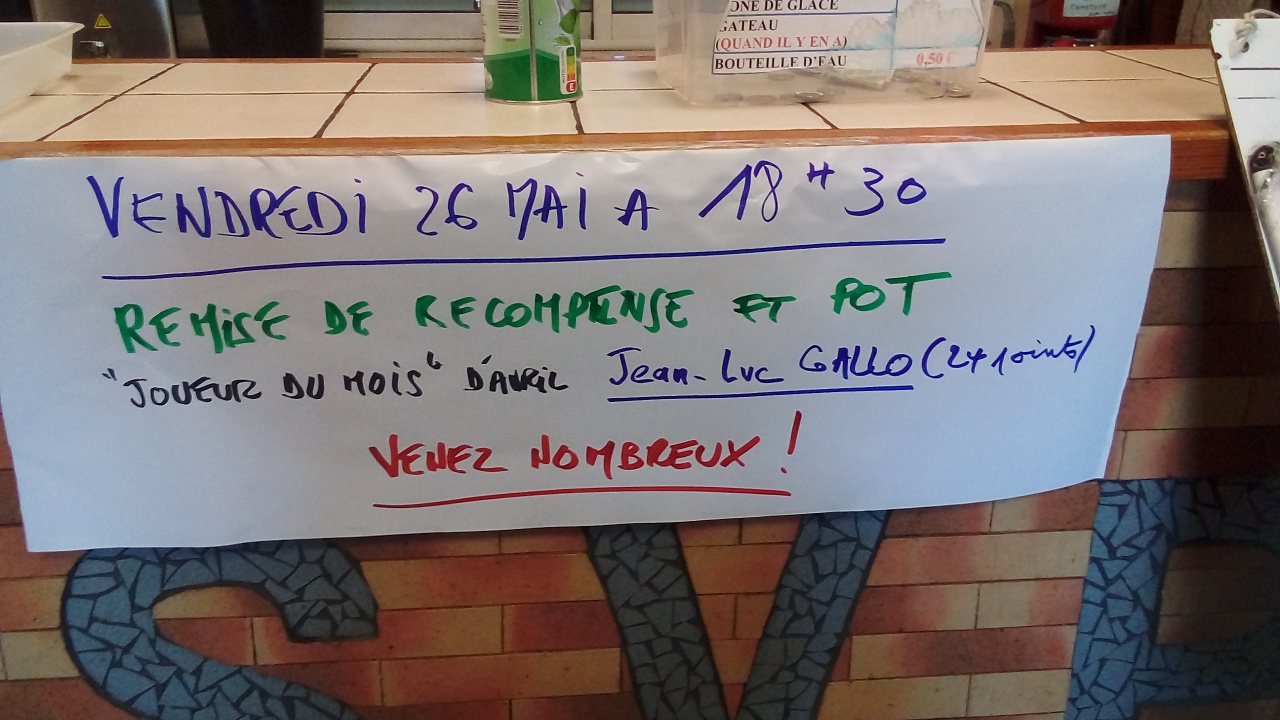 ONE DE GLACE
GATEAU
(QUAND IL Y EN A)
BOUTEILLE D'EAU 0,50 €
VENDREDI 26 MAI A 18H30
REMISE DE RECOMPENSE ET POT
"JOUEUR DU MOIS" D'AVRIL Jean-Luc GALLO (24 points)
VENEZ NOMBREUX !
SVP